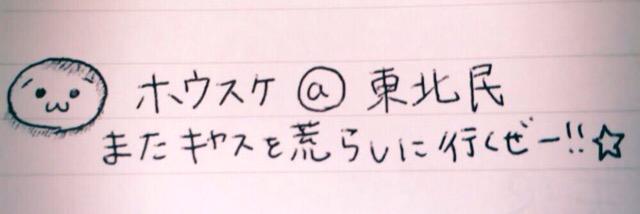 ホウスケ@東北民
またキャスを荒らしに行くぜー!!☆